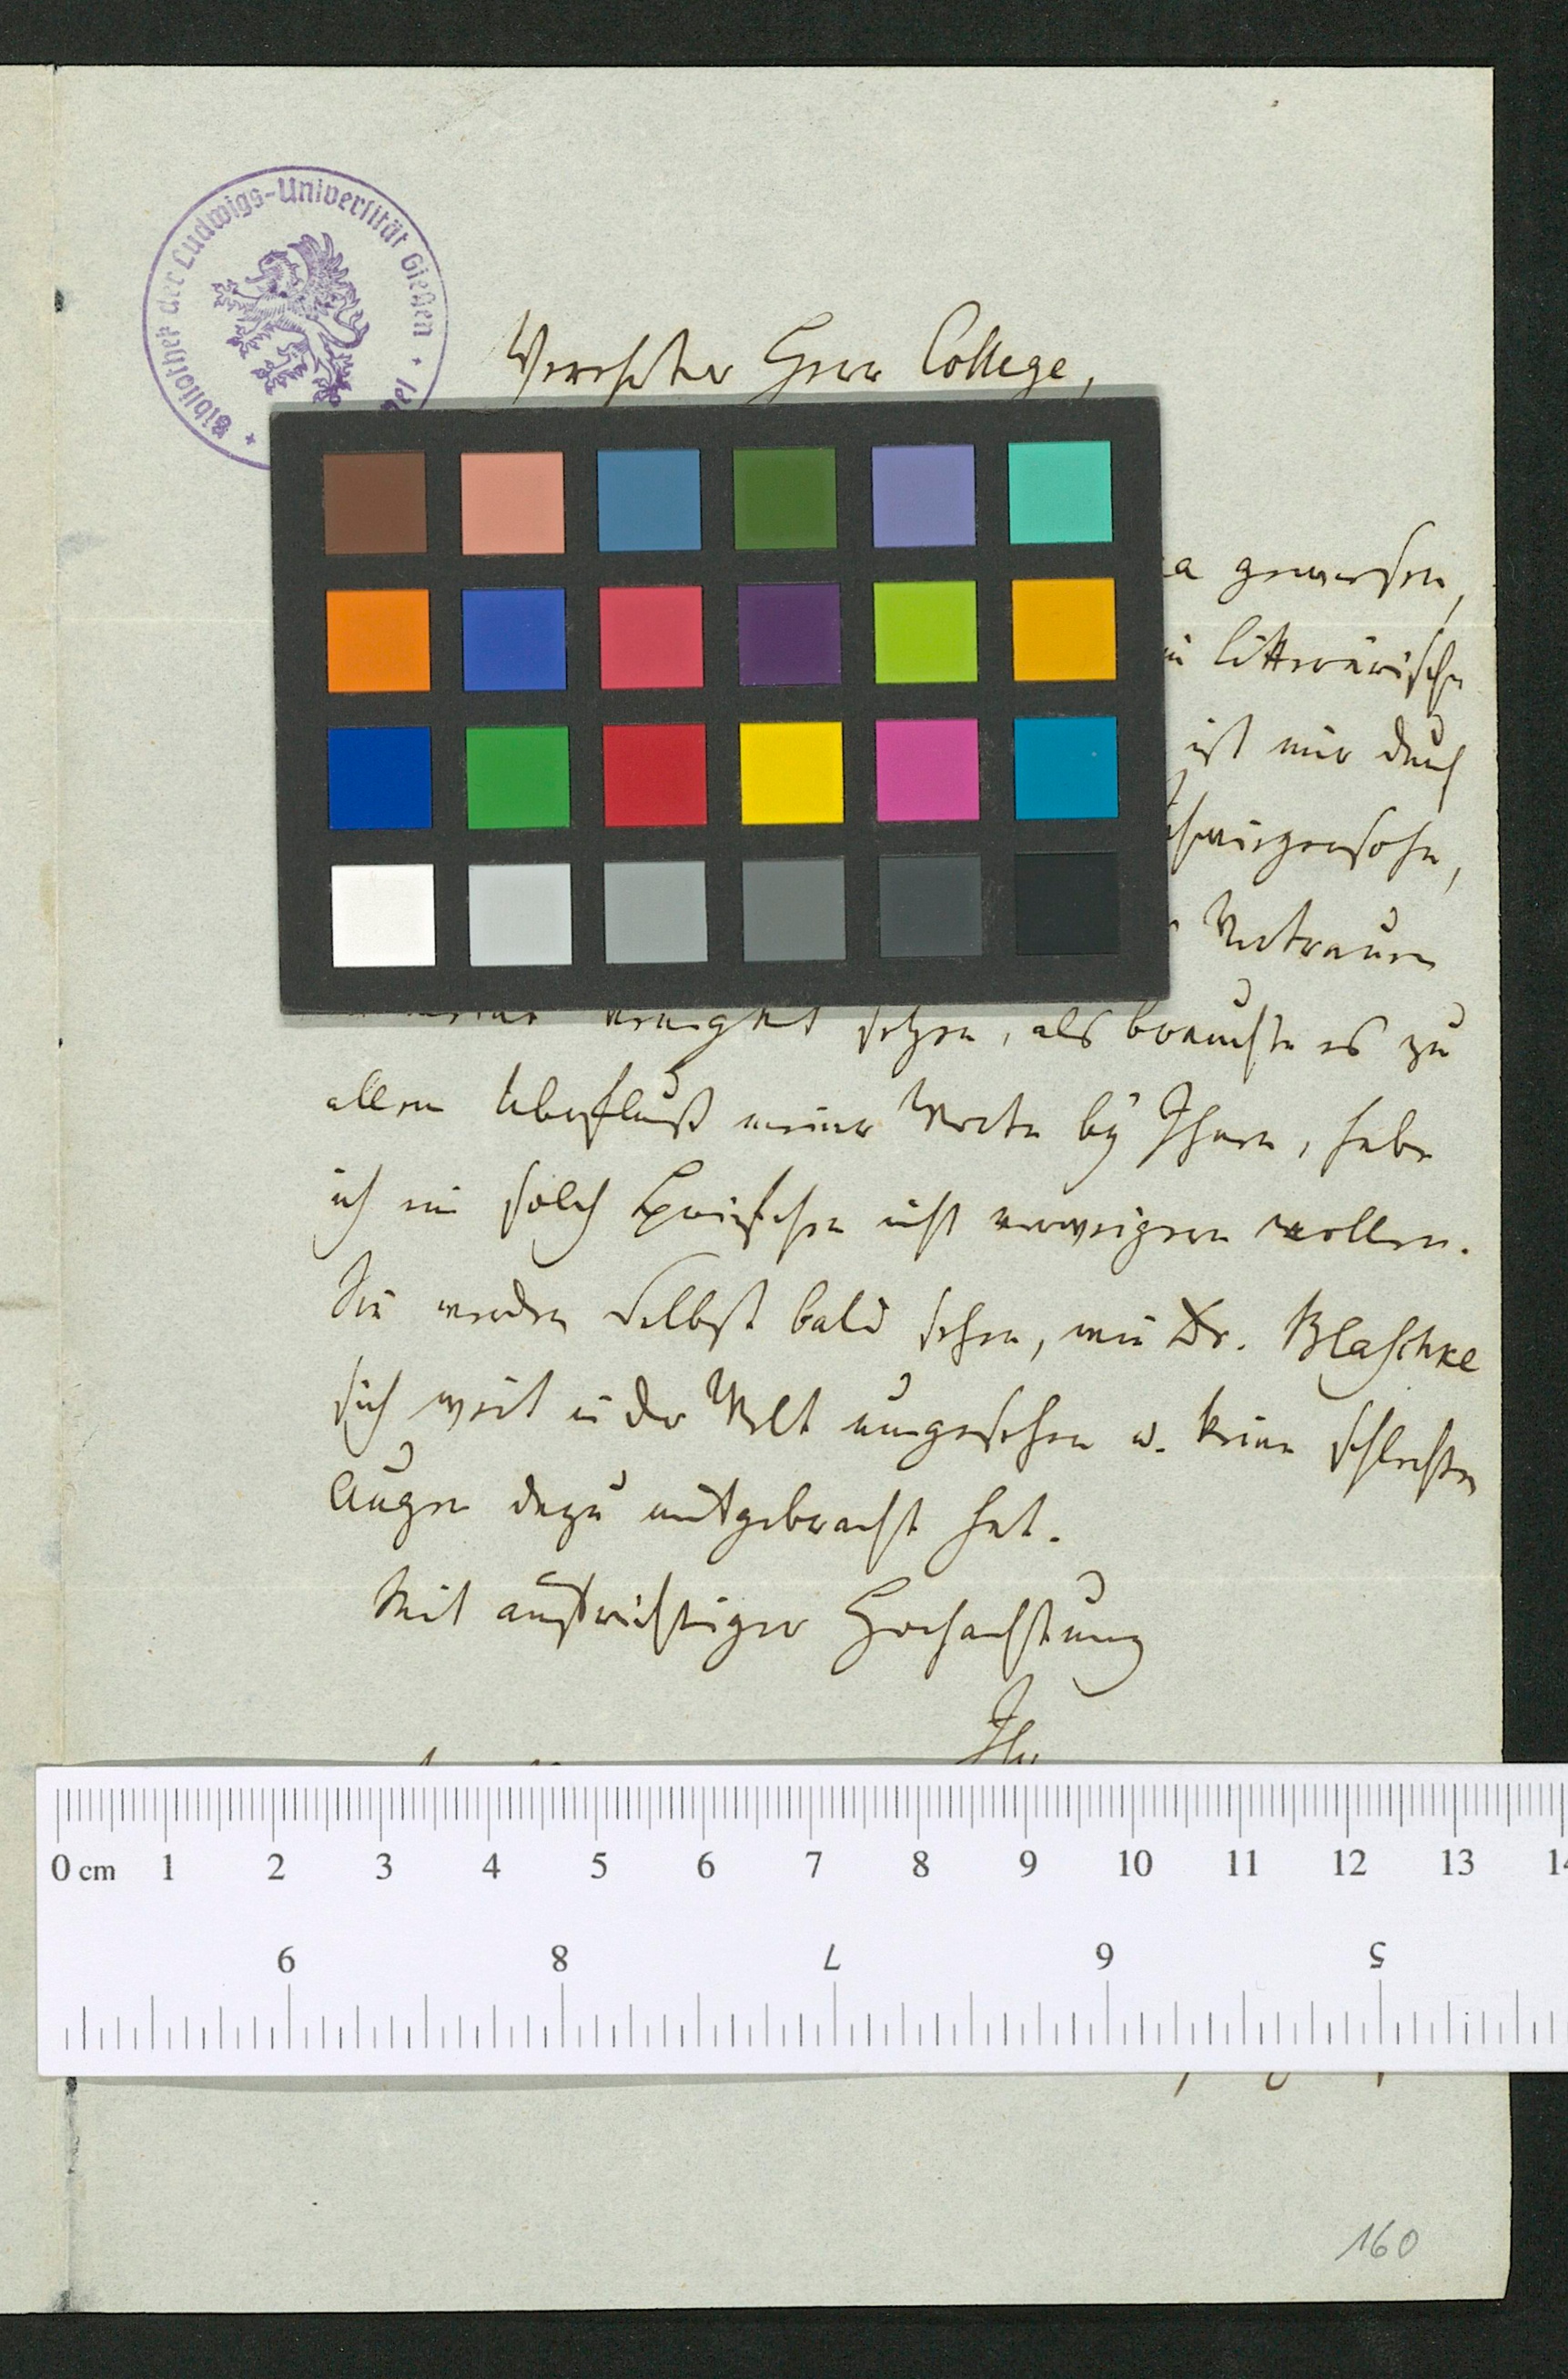 Bibliothek der Ludwigs-Universität Gießen
Verehrter Herr College,
gewesen,
litterärische
ist mir durch
Schwiegersohn,
Vertrauen
setzen, als brauchte es zu
allem Überfluß meiner Worte bei Ihnen, habe
ich ein solch Briefchen nicht verweigern wollen.
Sie werden Selbst bald sehen, wie Dr. Blaschke
sich weit in der Welt umgesehen u. keine schlechten
Augen dazu mitgebracht hat.
Mit aufrichtiger Hochachtung
Ihr
0 cm 1 2 3 4 5 6 7 8 9 10 11 12 13 14
9 8 7 6 5
160